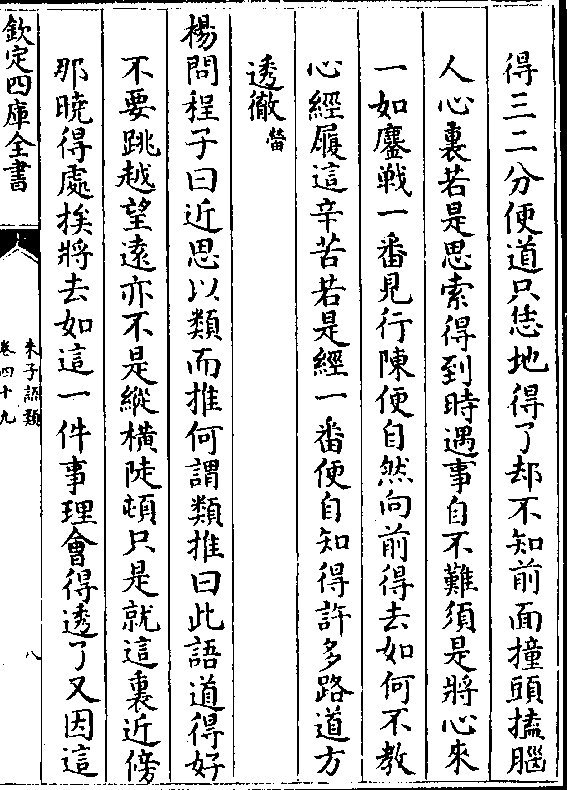 得三二分便道只恁地得了却不知前面撞頭搕腦
人心裏若是思索得到時遇事自不難須是將心來
一如鏖戰一番見行陳便自然向前得去如何不教
心經履這辛苦若是經一番便自知得許多路道方
透徹㽦
楊問程子曰近思以類而推何謂類推曰此語道得好
不要跳越望遠亦不是縱橫陡頓只是就這裏近傍
那曉得處挨將去如這一件事理會得透了又因這
欽定四庫全書
朱子語類
卷四十九
八